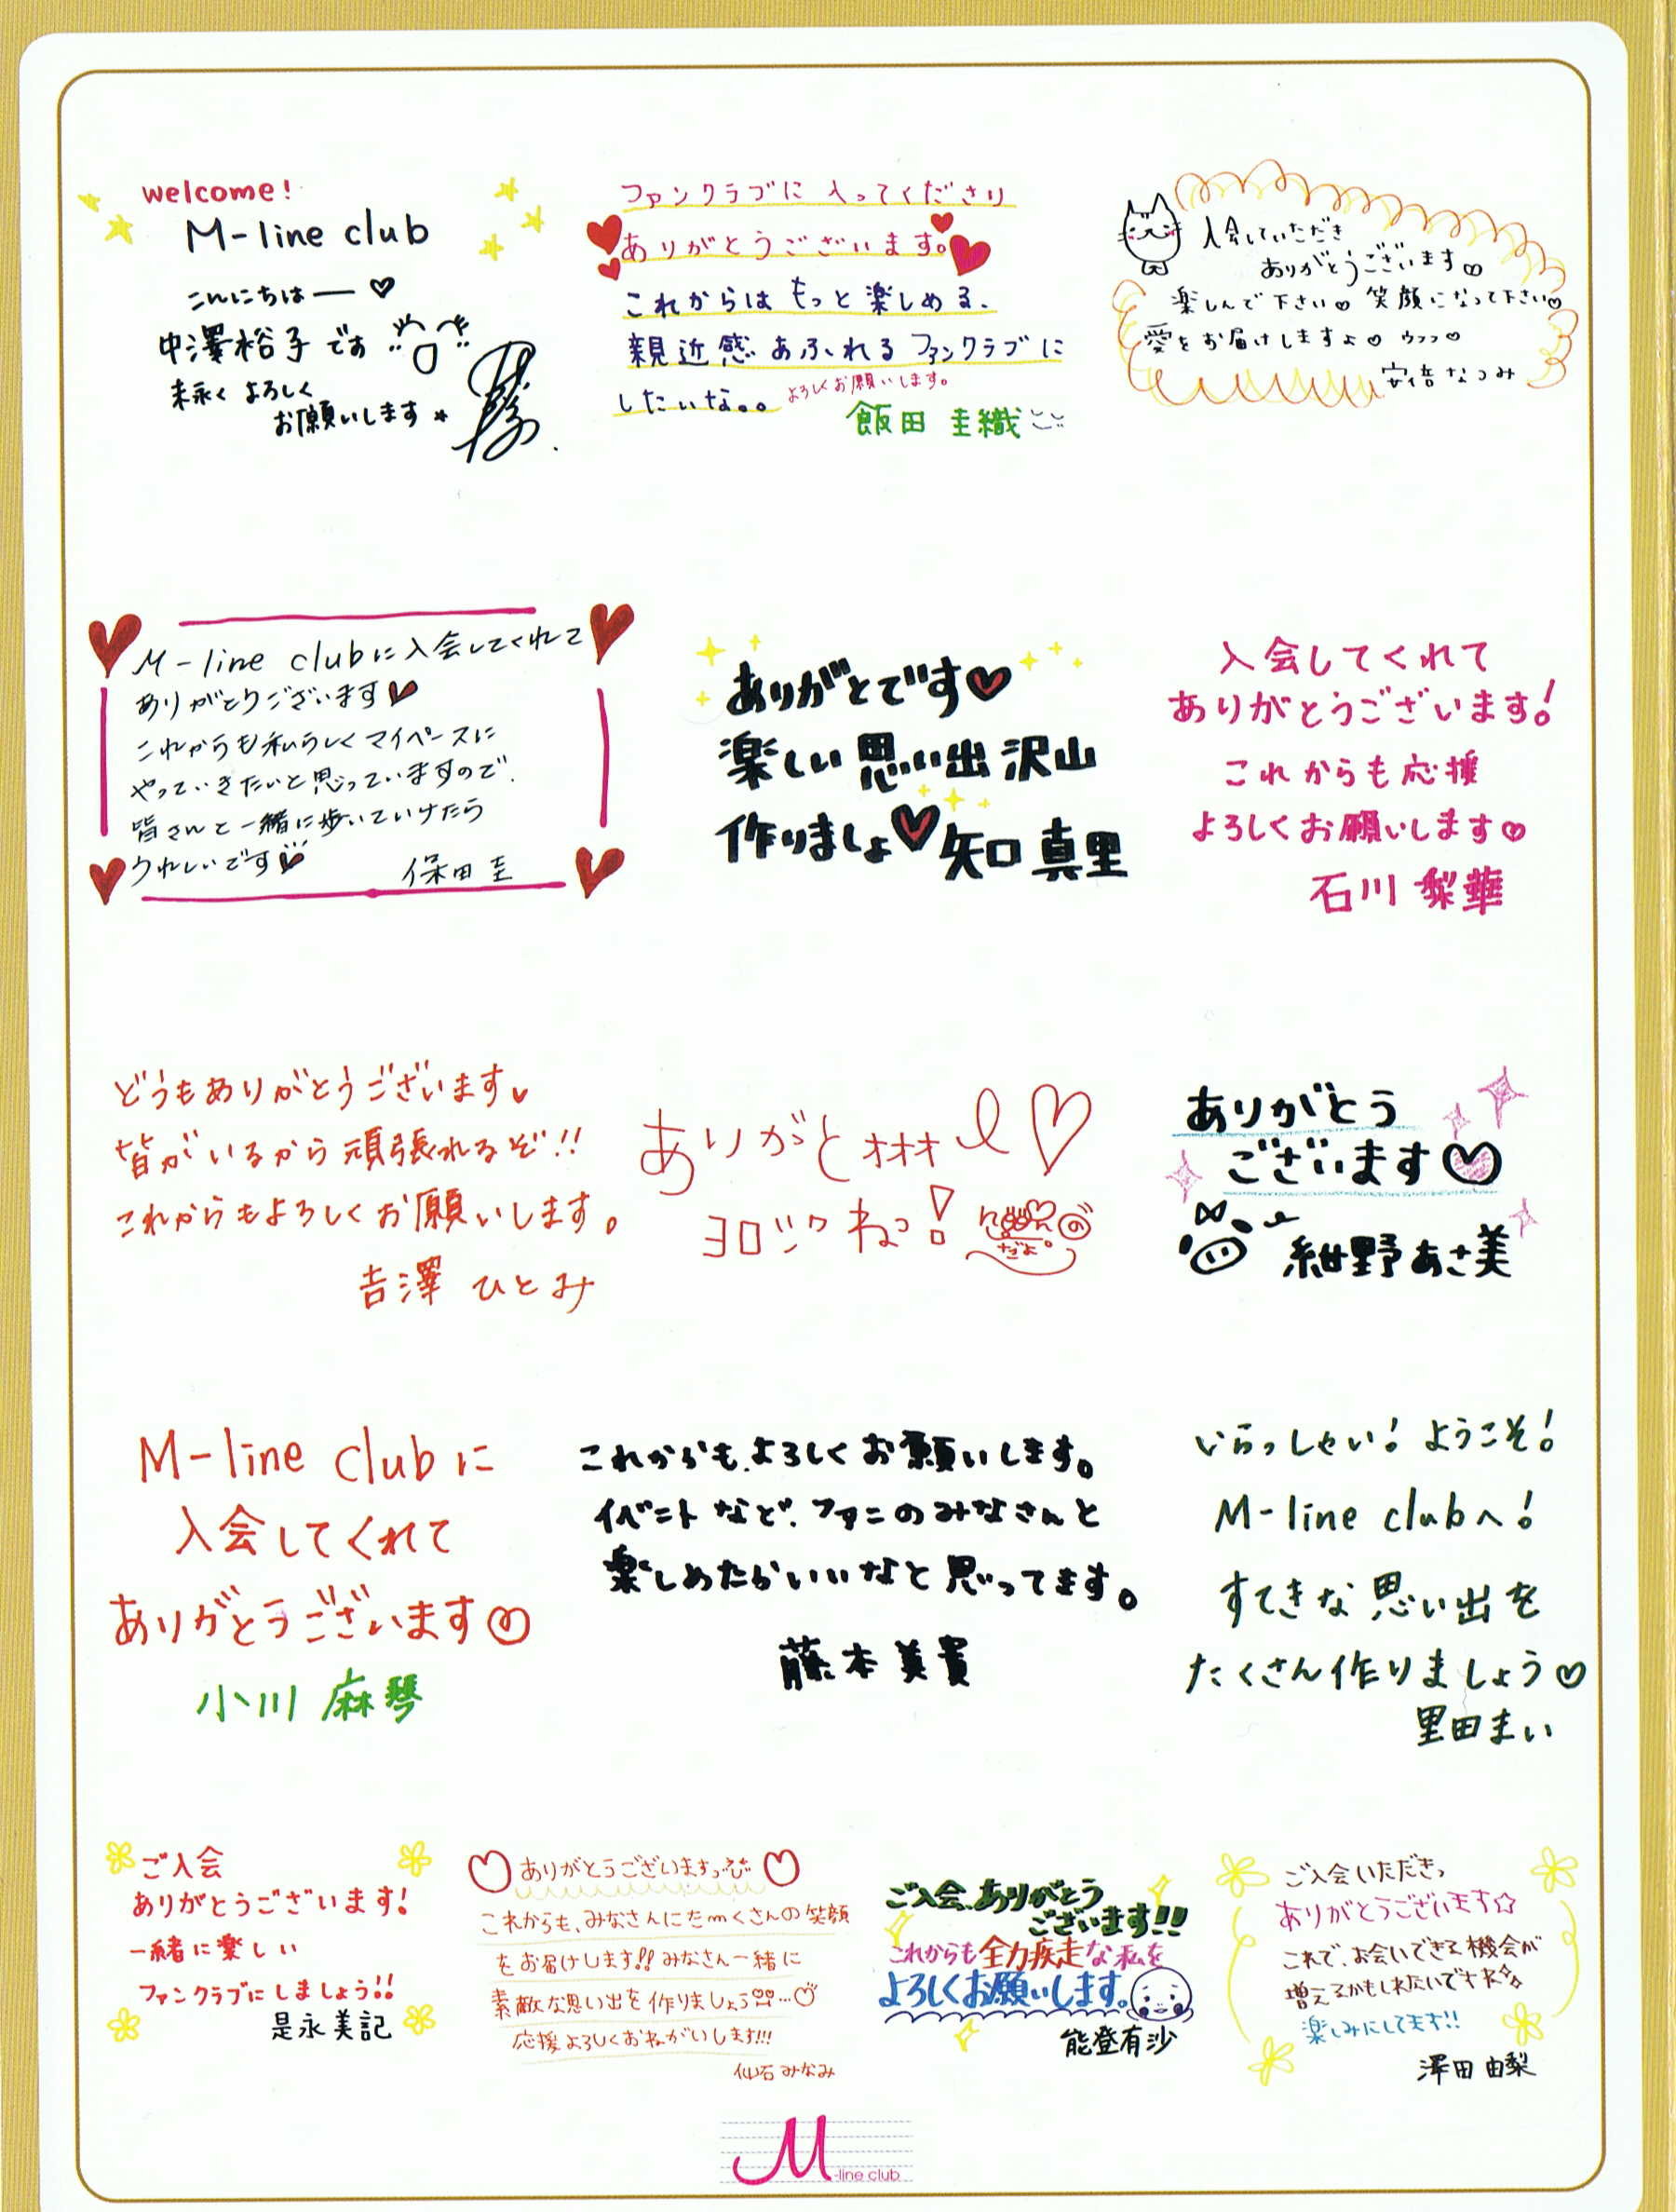 welcome!
M-line club
こんにちはー♡
中澤裕子です
末永くよろしく
お願いします
ファンクラブに入ってくださり
ありがとうございます。
これからはもっと楽しめる、
親近感あふれるファンクラブに
したいな。。
よろしくお願いします。
飯田圭織
入会していただき
ありがとうございます♡
楽しんで下さい♡ 笑顔になって下さい♡
愛をお届けしますよ♡ ゥフフ♡
安倍なつみ
M-line clubに入会してくれて
ありがとうございます♥
これからも私らしくマイペースに
やっていきたいと思っていますので、
皆さんと一緒に歩いていけたら
うれしいです♥
保田圭
ありがとです♥
楽しい思い出沢山
作りましょ♥
矢口真里
入会してくれて
ありがとうございます!
これからも応援
よろしくお願いします♡
石川梨華
どうもありがとうございます♥
皆がいるから頑張れるぞ!!
これからもよろしくお願いします。
吉澤ひとみ
ありがとォォォ♡
ヨロシクねっ!
だよ。
ありがとう
ございます♡
紺野あさ美
M-line clubに
入会してくれて
ありがとうございます
小川麻琴
これからも、よろしくお願いします。
イベントなど、ファンのみなさんと
楽しめたらいいなと思ってます。
藤本美貴
いらっしゃい! ようこそ!
M-line clubへ!
すてきな思い出を
たくさん作りましょう♡
里田まい
ご入会
ありがとうございます!
一緒に楽しい
ファンクラブにしましょう!!
是永美記
♡ありがとうございますっ♡
これからも、みなさんにたmくさんの笑顔
をお届けします!! みなさん一緒に
素敵な思い出を作りましょう…♡
応援よろしくおねがいします!!!
仙石みなみ
ご入会、ありがとう
ございます!!
これからも全力疾走な私を
よろしくお願いします。
能登有沙
ご入会いただきっ
ありがとうございます☆
これで、お会いできる機会が
増えるかもしれないですね
楽しみにしてます!!
澤田由梨
M-line club